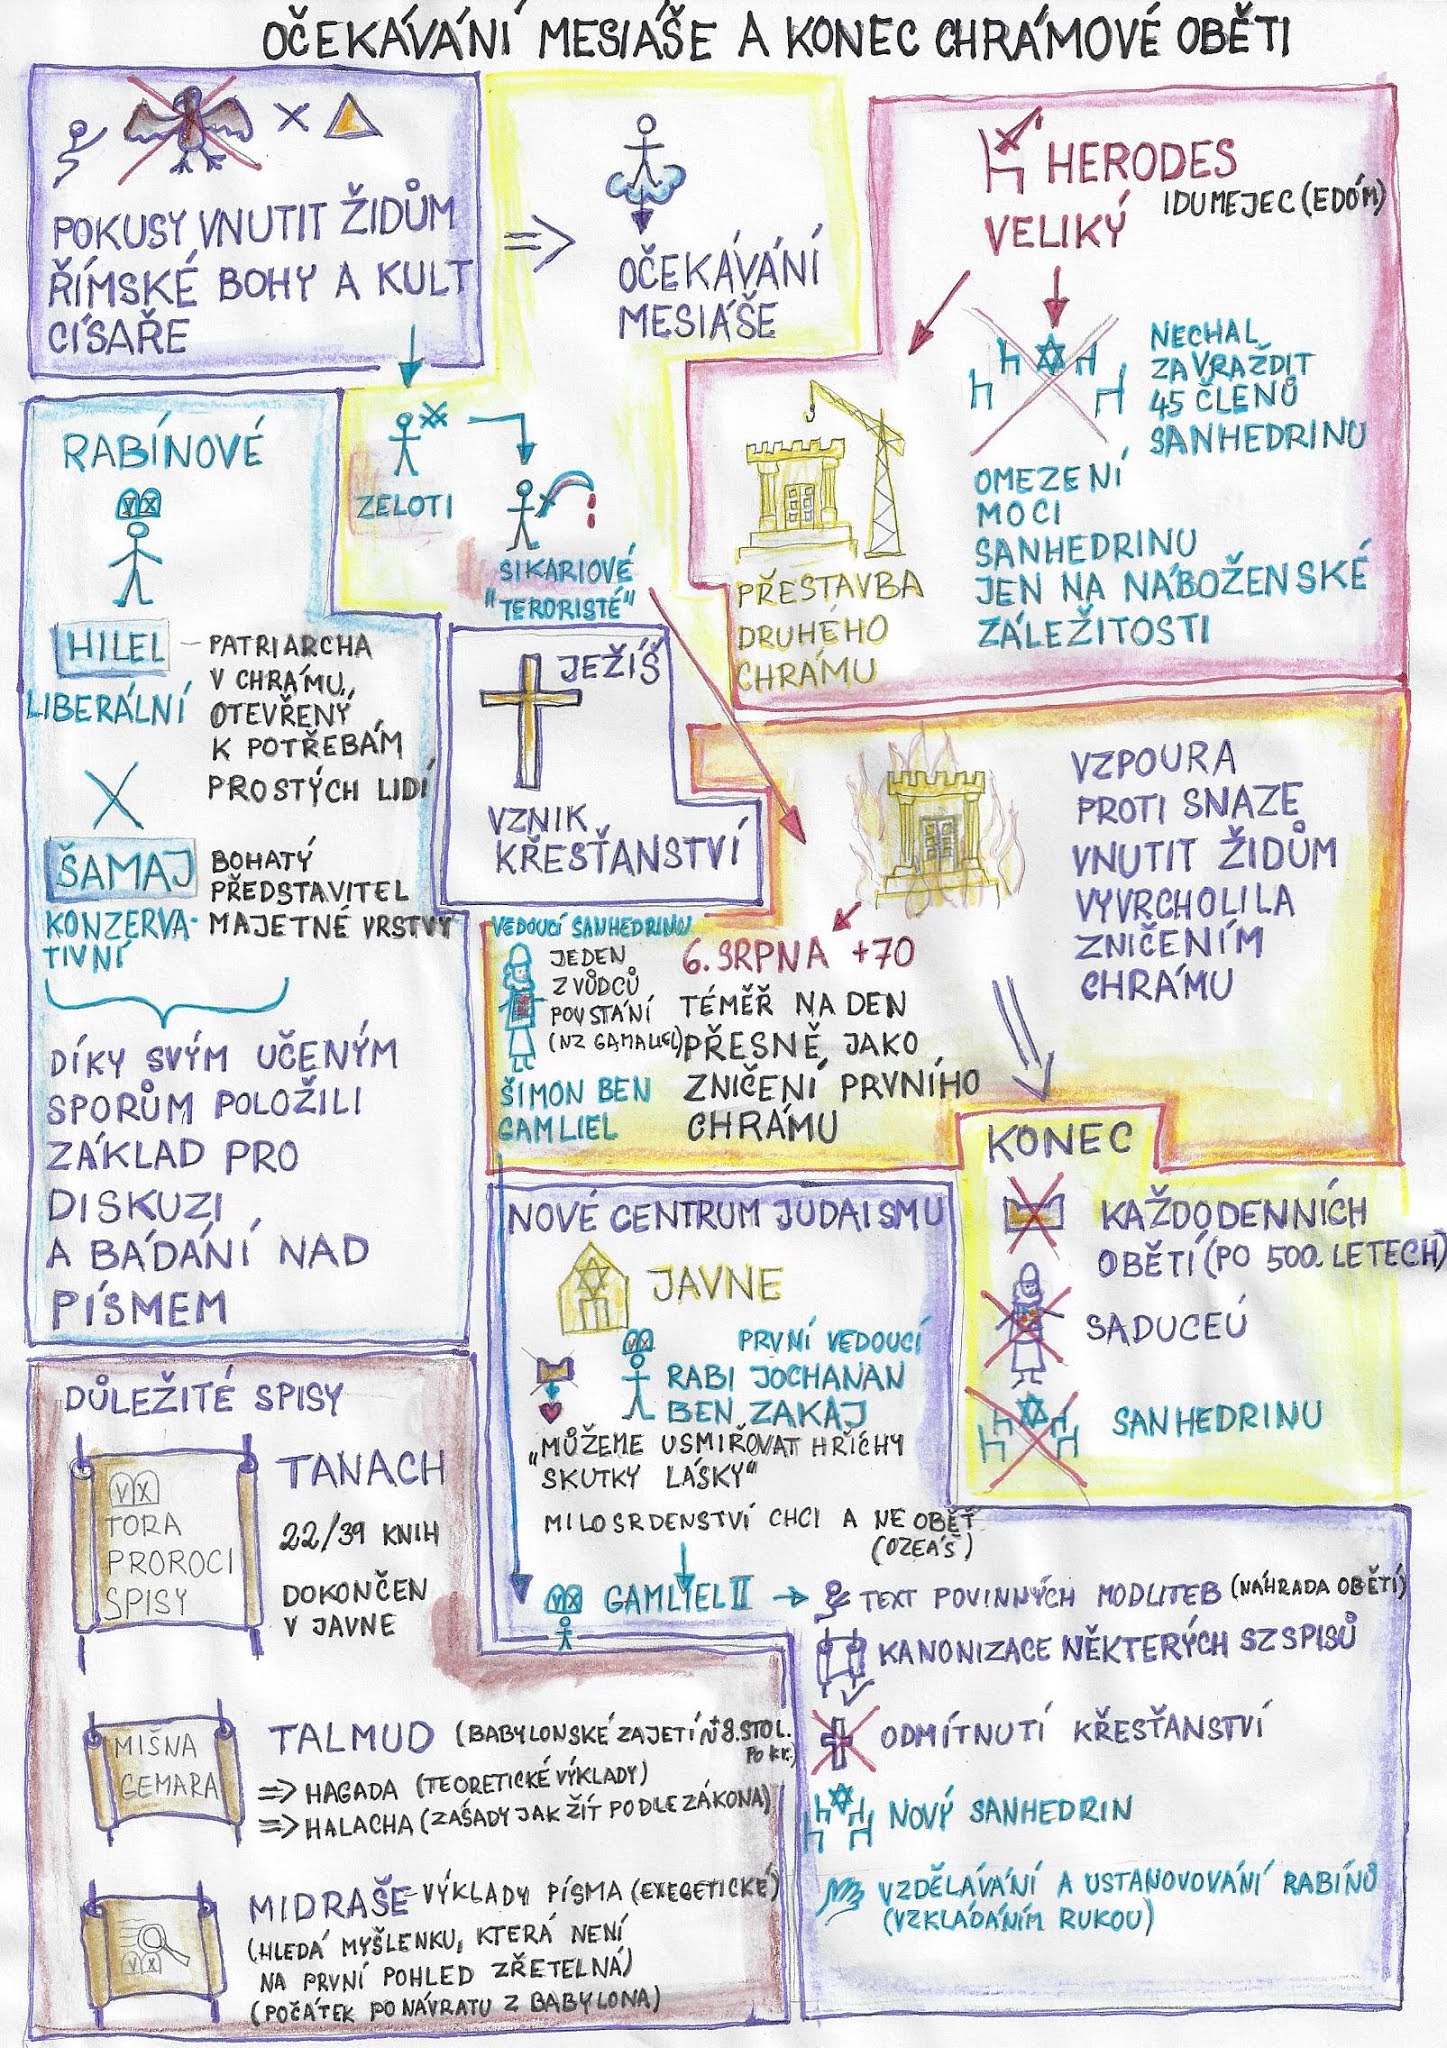 OČEKÁVÁNÍ MESIÁŠE A KONEC CHRÁMOVÉ OBĚTI
POKUSY VNUTIT ŽIDŮM
ŘÍMSKÉ BOHY A KULT
CÍSAŘE
OČEKÁVÁNÍ
MESIÁŠE
HERODES
VELIKÝ
IDUMEJEC (EDÓM)
NECHAL
ZAVRAŽDIT
45 ČLENŮ
SANHEDRINU
OMEZENÍ
MOCI
SANHEDRINU
JEN NA NÁBOŽENSKÉ
ZÁLEŽITOSTI
PŘESTAVBA
DRUHÉHO
CHRÁMU
ZELOTI
SIKARIOVÉ
"TERORISTÉ"
RABÍNOVÉ
V X
HILEL
LIBERÁLNÍ
PATRIARCHA
V CHRÁMU,
OTEVŘENÝ
K POTŘEBÁM
PROSTÝCH LIDÍ
ŠAMAJ
KONZERVA-
TIVNÍ
BOHATÝ
PŘEDSTAVITEL
MAJETNÉ VRSTVY
DÍKY SVÝM UČENÝM
SPORŮM POLOŽILI
ZÁKLAD PRO
DISKUZI
A BÁDÁNÍ NAD
PÍSMEM
JEŽÍŠ
VZNIK
KŘESŤANSTVÍ
VZPOURA
PROTI SNAZE
VNUTIT ŽIDŮM
VYVRCHOLILA
ZNIČENÍM
CHRÁMU
VEDOUCÍ SANHEDRINU
JEDEN
Z VŮDCŮ
POVSTÁNÍ
(NZ GAMALIEL)
ŠIMON BEN
GAMLIEL
6. SRPNA +70
TÉMĚŘ NA DEN
PŘESNĚ, JAKO
ZNIČENÍ PRVNÍHO
CHRÁMU
KONEC
KAŽDODENNÍCH
OBĚTÍ (PO 500. LETECH)
SADUCEŮ
SANHEDRINU
NOVÉ CENTRUM JUDAISMU
JAVNE
V X
PRVNÍ VEDOUCÍ
RABI JOCHANAN
BEN ZAKAJ
„MŮŽEME USMIŘOVAT HŘÍCHY
SKUTKY LÁSKY“
MILOSRDENSTVÍ CHCI A NE OBĚŤ
(OZEÁŠ)
V X
GAMLIEL II
TEXT POVINNÝCH MODLITEB (NÁHRADA OBĚTÍ)
KANONIZACE NĚKTERÝCH SZ SPISŮ
ODMÍTNUTÍ KŘESŤANSTVÍ
NOVÝ SANHEDRIN
VZDĚLÁVÁNÍ A USTANOVOVÁNÍ RABÍNŮ
(VZKLÁDÁNÍM RUKOU)
DŮLEŽITÉ SPISY
V X
TORA
PROROCI
SPISY
TANACH
22/39 KNIH
DOKONČEN
V JAVNE
MIŠNA
GEMARA
TALMUD (BABYLONSKÉ ZAJETÍ 8. STOL.
PO KR.)
=> HAGADA (TEORETICKÉ VÝKLADY)
=> HALACHA (ZÁSADY JAK ŽÍT PODLE ZÁKONA)
V X
MIDRAŠE - VÝKLADY PÍSMA (EXEGETICKÉ)
(HLEDÁ MYŠLENKU, KTERÁ NENÍ
NA PRVNÍ POHLED ZŘETELNÁ)
(POČÁTEK PO NÁVRATU Z BABYLONA)